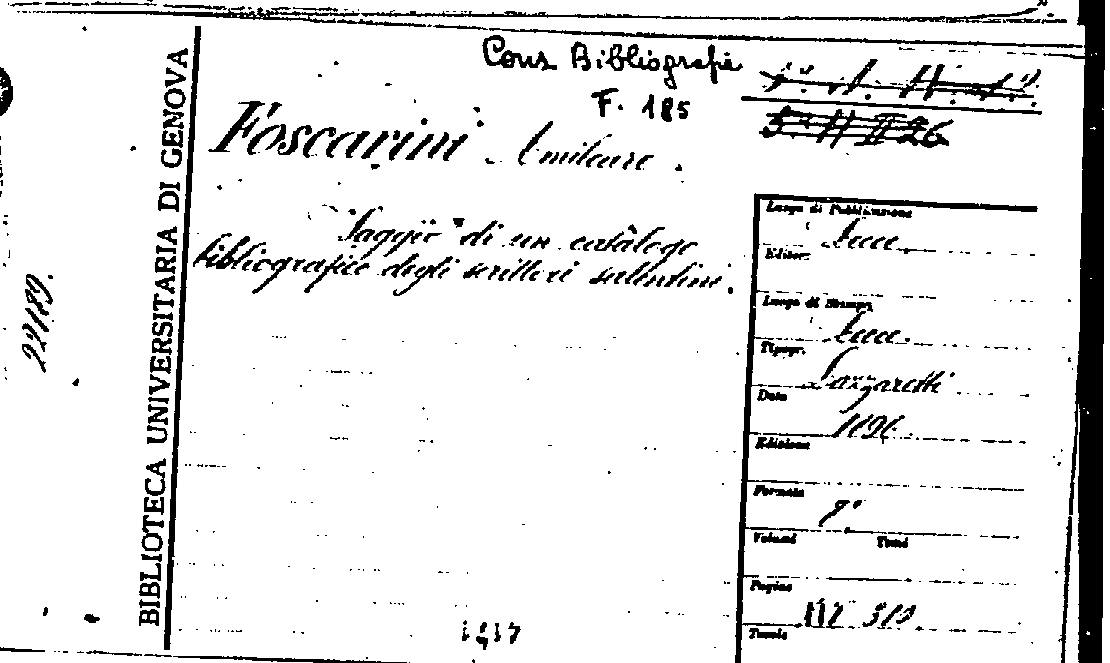 Cons Bibliografie
F. 185
5ª H II 26
Foscarini Amilcare.
"Saggio" di un catalogo
bibliografico degli scrittori salentini.
BIBLIOTECA UNIVERSITARIA DI GENOVA
22189.
Luogo di Pubblicazione
Lecce
Editore
Luogo di Stampa
Lecce.
Tipogr.
Lazzaretti
Data
Edizione
Formato
8°
Volumi Tomi
Pagine
310.
Tavole